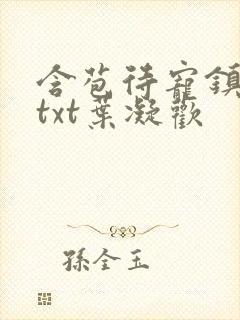 含苞待寵鎮
txt葉凝歡
孫全玉